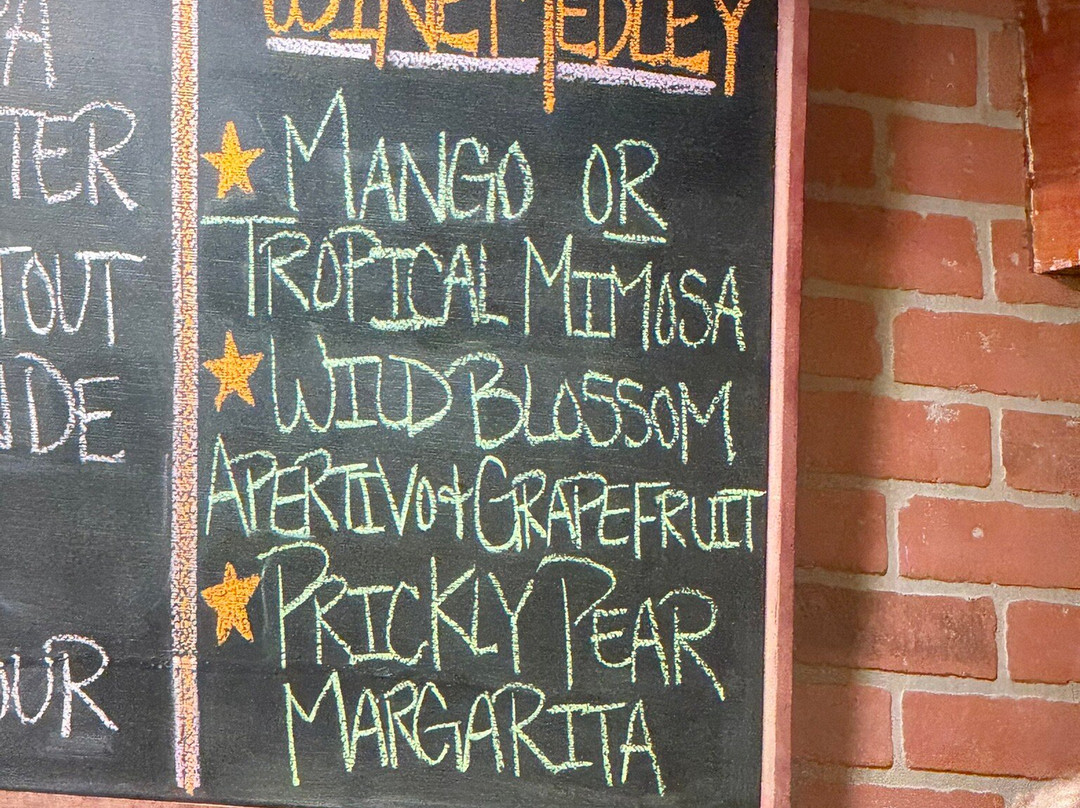 WINE MEDLEY
MANGO OR
TROPICAL MIMOSA
WILD BLOSSOM
APERITIVO & GRAPEFRUIT
PRICKLY PEAR
MARGARITA
TER
TOUT
DE
OUR